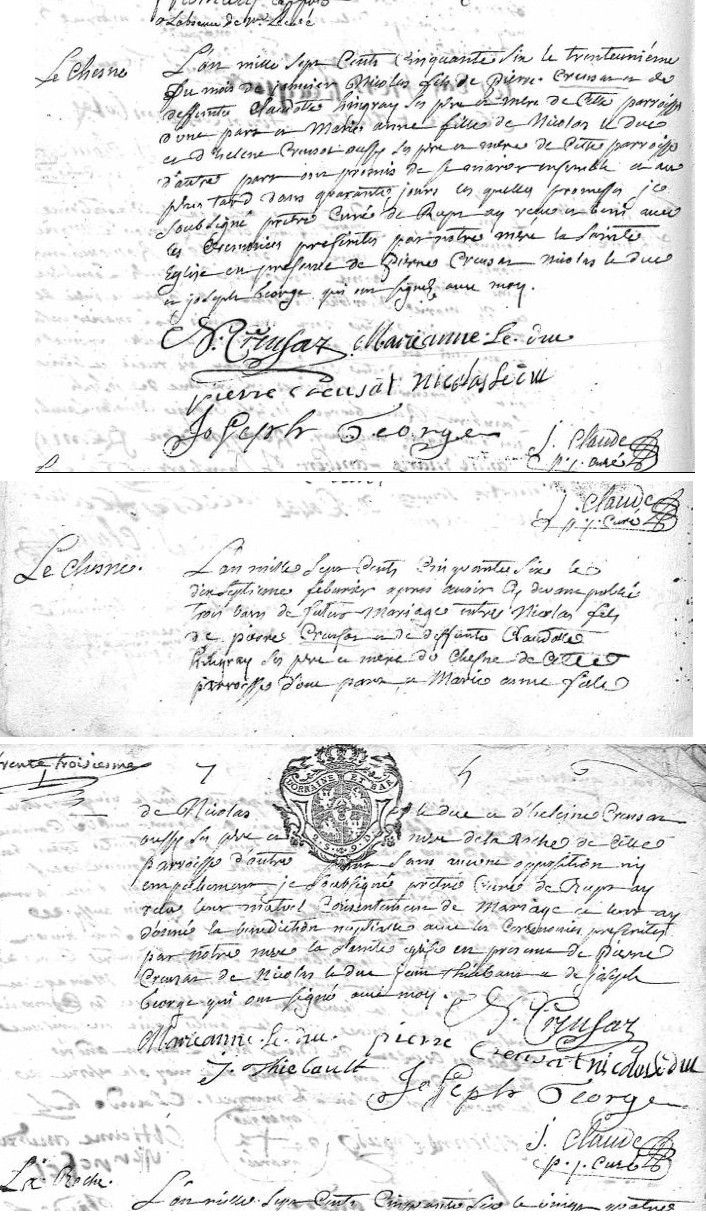 Le Chesne
L'an mille sept Cents Cinquante Six le trenteunième
Du mois de janvier Nicolas fils de Pierre Creusat et de
deffunte Claudotte ses père et mère de Cette parroisse
d'une part et Marie anne fille de Nicolas le duc
et d'helene Creusat aussy ses père et mère de Cette parroisse
d'autre part ont promis de ensemble et au
plus tard dans quarante jours les quelles promesses je
soubsigné prêtre Curé de Rapt ay reçue et beni avec
les Ceremonies presentes par notre mère la Sainte
Eglise en presence de Pierre Creusat Nicolas le duc
et joseph George qui ont signés avec moy.
N. Creusaz Marieanne Le duc
pierre creusat nicolas le duc
Joseph George
J. Claude
p. j. curé
J. Claude
p. j. Curé
Le Chesne.
L'an mille Sept Cents Cinquante Six le
dixseptieme febvrier apres avoir Cy devant publié
trois bans de futur Mariage entre Nicolas fils
de pierre Creusat et de deffunte Claudotte
ses père et mère du Chesne de Cette
parroisse d'une part et Marie anne fille
trente troisiesme
7 5 6
LORRAINE ET BAR
de Nicolas le duc et d'heleine Creusat
aussy ses père et mère de la Roche de Cette
parroisse d'autre part Sans aucune opposition ny
empechement je Soubsigné prêtre Curé de Rapt ay
reçu leur mutuel Consentement de Mariage et leur ay
donné la benediction nuptiale avec les Ceremonies presentes
par notre mere la Sainte eglise en presence de pierre
Creusat de Nicolas le duc jean thiebaut et de joseph
George qui ont signé avec moy.
N. Creusaz
Marieanne Le duc. pierre creusat nicolas le duc
J. Thiebault Joseph George
J. Claude
p. j. Curé
La Roche.
L'an mille Sept Cents Cinquante Six le vingt quatre